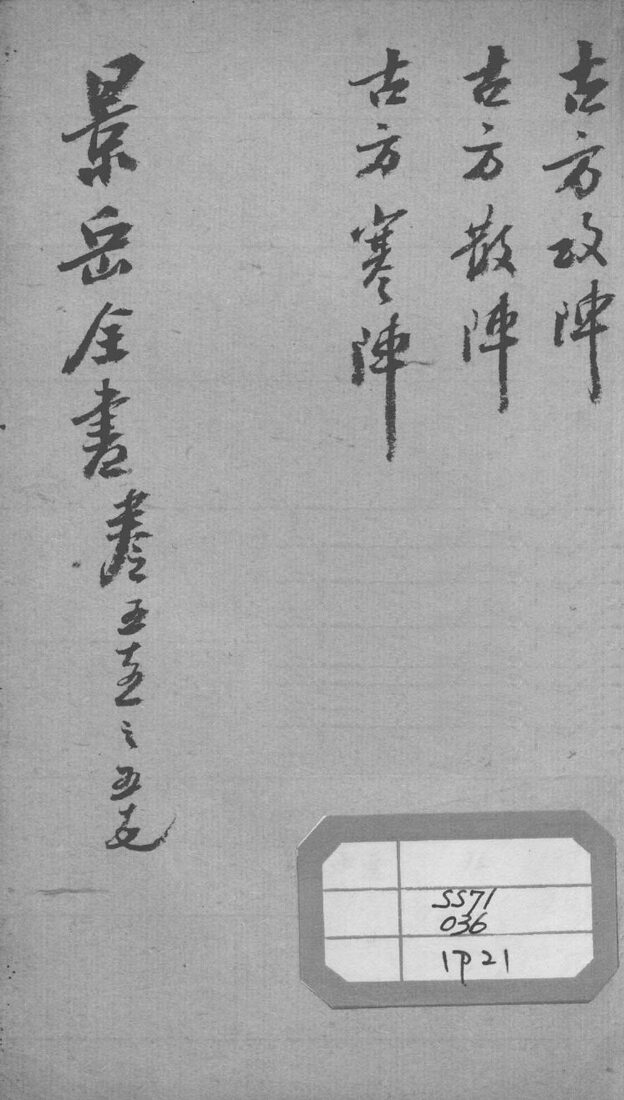 古方攻陣
古方散陣
古方寒陣
景岳全書卷五十五之五十七
SS71
036
1P21